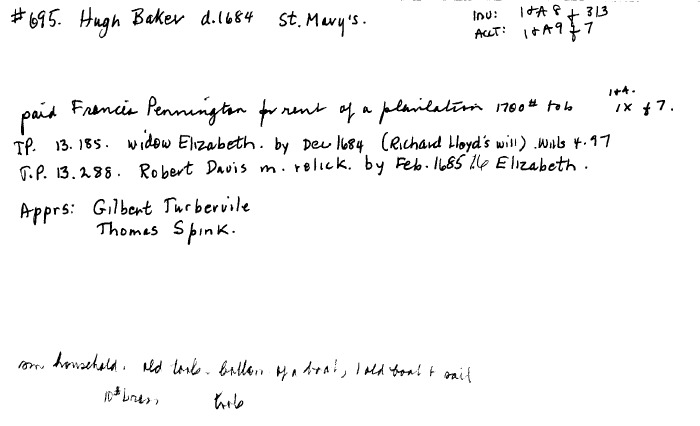 #695. Hugh Baker d.1684 St. Mary's. INV: I&A 8 f 313
ACCT: I&A9 f 7
paid Francis Pennington for rent of a plantation 1700# tob I&A. IX f 7.
T.P. 13.185. widow Elizabeth. by Dec 1684 (Richard Lloyd's will). Wills 4.97
T.P. 13.288. Robert Davis m. relick. by Feb. 1685/6 Elizabeth.
Apprs: Gilbert Turbervile
Thomas Spink.
household. old tools. bottom of a boat, 1 old boat & sail
10# brass,